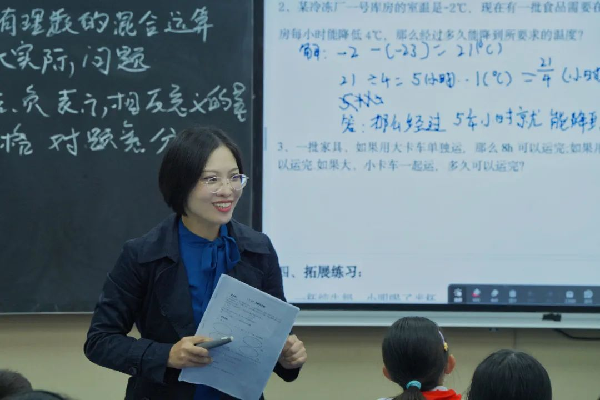 有理数的混合运算
大实际问题
负表示,相反意义的量
格 对题充分
2、某冷冻厂一号库房的室温是-2℃, 现在有一批食品需要在
房每小时能降低 4℃, 那么经过多久能降到所要求的温度?
解: -2 -(-23) = 21(℃)
21 ÷ 4 = 5小时 · 1(℃) = 21/4 (小时
答: 那么经过 5 小时就 能降到
3、一批家具, 如果用大卡车单独运, 那么 8h 可以运完;如果用
以运完.如果大、小卡车一起运, 多久可以运完?
四、拓展练习: